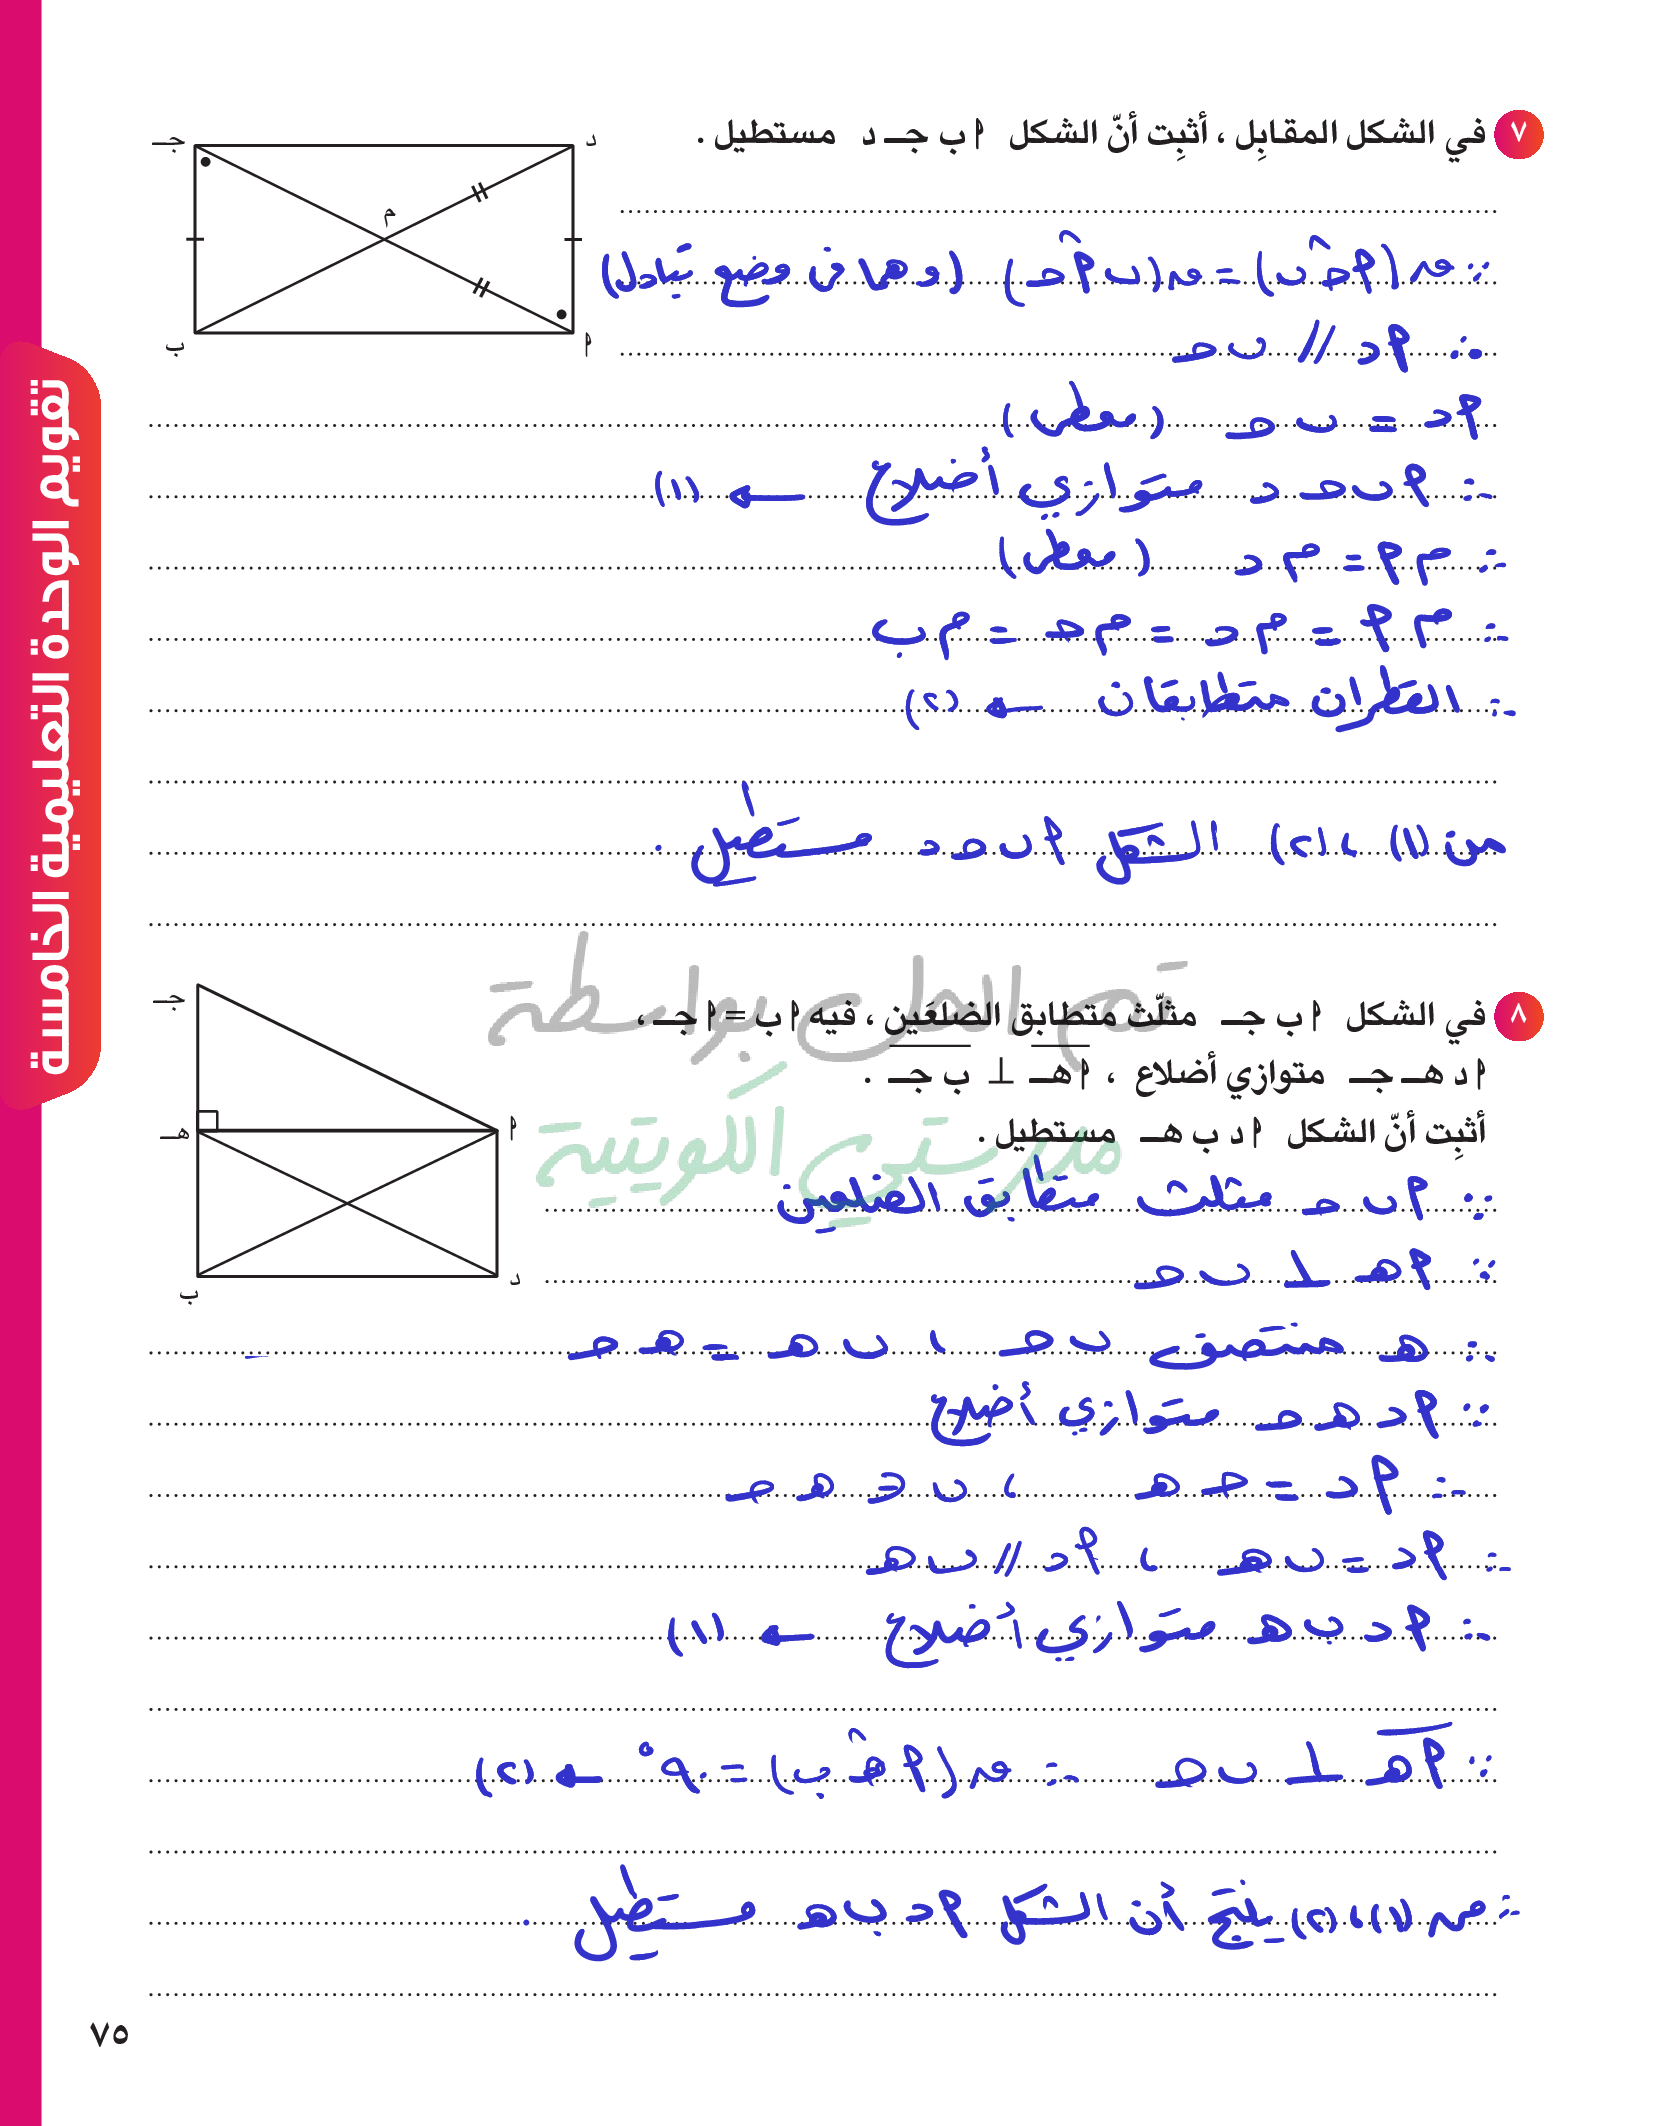 ٧ في الشكل المقابِل ، أثبِت أنّ الشكل أ ب جـ د مستطيل .
جـ
د
م
ب
أ
∵ ق(أ جـ ب) = ق(ب أ جـ) (وهما في وضع تبادل)
∴ أ د // ب جـ
أ د = ب جـ (معطى)
∴ أ ب جـ د متوازي أضلاع ← (١)
∵ م أ = م د (معطى)
∴ م أ = م د = م جـ = م ب
∴ القطران متطابقان ← (٢)
من (١) ، (٢) الشكل أ ب جـ د مستطيل .
تم الحل بواسطة
مدرستي الكويتية
٨ في الشكل أ ب جـ مثلّث متطابق الضلعَين ، فيه أ ب = أ جـ ،
أ د هـ جـ متوازي أضلاع ، أ هـ ⊥ ب جـ .
أثبِت أنّ الشكل أ د ب هـ مستطيل .
جـ
هـ
أ
ب
د
∵ أ ب جـ مثلث متطابق الضلعين
∵ أ هـ ⊥ ب جـ
∴ هـ منتصف ب جـ ، ب هـ = هـ جـ
∵ أ د هـ جـ متوازي أضلاع
∴ أ د = جـ هـ ، ب ∈ هـ جـ
∴ أ د = ب هـ ، أ د // ب هـ
∴ أ د ب هـ متوازي أضلاع ← (١)
∵ أ هـ ⊥ ب جـ ∴ ق(أ هـ ب) = ٩٠° ← (٢)
∴ من (١) ، (٢) ينتج أن الشكل أ د ب هـ مستطيل .
تقويم الوحدة التعليمية الخامسة
٧٥